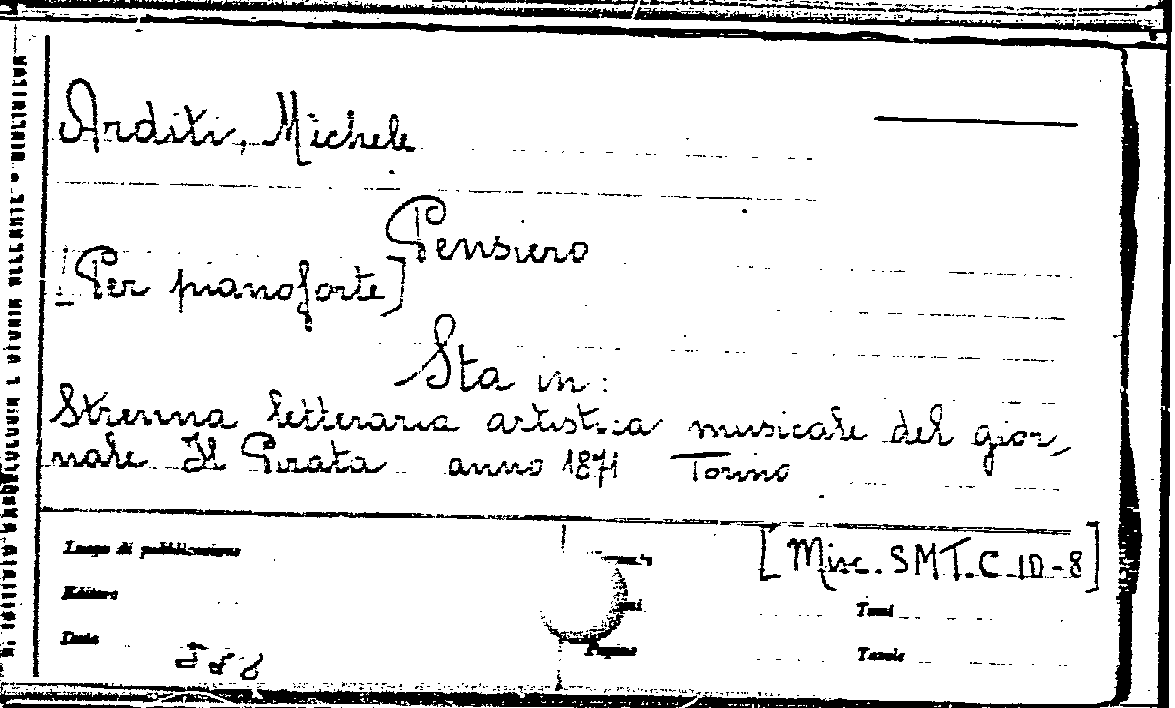 Arditi, Michele
Pensiero
[Per pianoforte]
Sta in:
Strenna letteraria artistica musicale del gior,
nale Il Pirata anno 1871 Torino
Luogo di pubblicazione
[Misc. SMT.C 10-8]
Editore
Tomi
Data
Pagine
Tavole